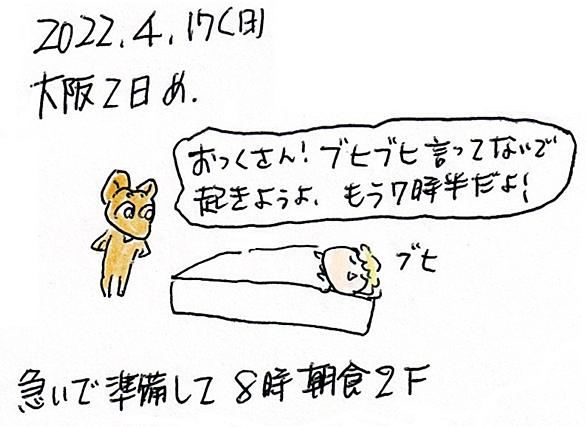 2022.4.17(日)
大阪2日め.
おっくさん!ブヒブヒ言ってないで
起きようよ.もう7時半だよ!
ブヒ
急いで準備して8時朝食2F